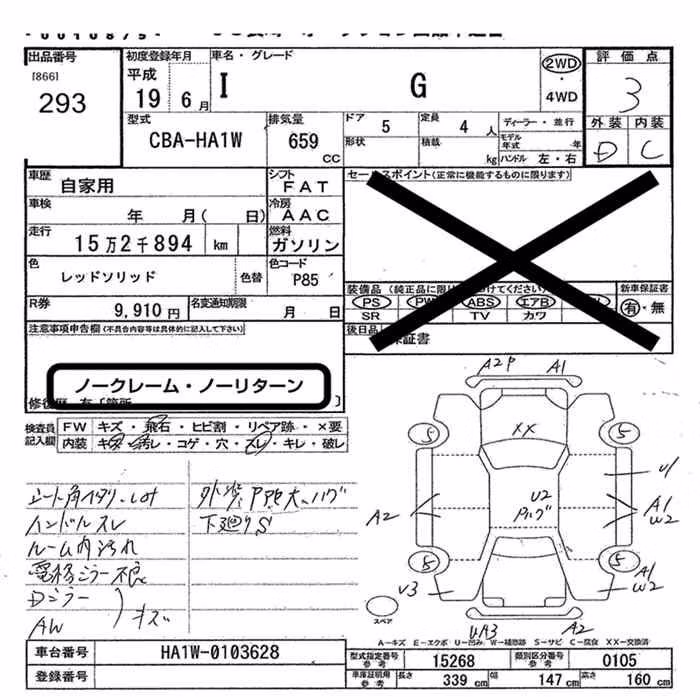 出品番号
[866]
293
初度登録年月
平成
19 6月
車名・グレード
I G
2WD
・
4WD
評価点
3
外装 内装
D C
型式
CBA-HA1W
排気量
659
CC
ドア 5
形状
定員 4 人
積載 kg
ディーラー・並行
モデル年式 年
ハンドル 左・右
車歴
自家用
シフト
FAT
車検
年 月( 日)
冷房
AAC
走行
15万2千894 km
燃料
ガソリン
色
レッドソリッド
色替
色コード
P85
R券
9,910円
名変通知期限
月 日
セールスポイント(正常に機能するものに限ります)
装備品
PS ABS エアB
SR TV カワ
新車保証書
有・無
後日品
保証書
注意事項申告欄(不具合内容等は具体的に記入して下さい)
ノークレーム・ノーリターン
検査員記入欄
FW キズ・飛石・ヒビ割・リペア跡・×要
内装 キズ・汚レ・コゲ・穴・スレ・キレ・破レ
ハンドルスレ
ルーム内汚れ
電格ミラー不良
Dミラー
AW
キズ
下廻りS
A2P A1
5 5
XX
U1
U2
A2
A1
W2
5 5
V3
A1
W2
A2
スペア
A－キズ E－エクボ U－凹み W－補修跡 S－サビ C－腐食 XX－交換済
車台番号
HA1W-0103628
登録番号
型式指定番号
参考
15268
類別区分番号
参考
0105
車庫証明用
参考
長さ 339 cm 幅 147 cm 高さ 160 cm